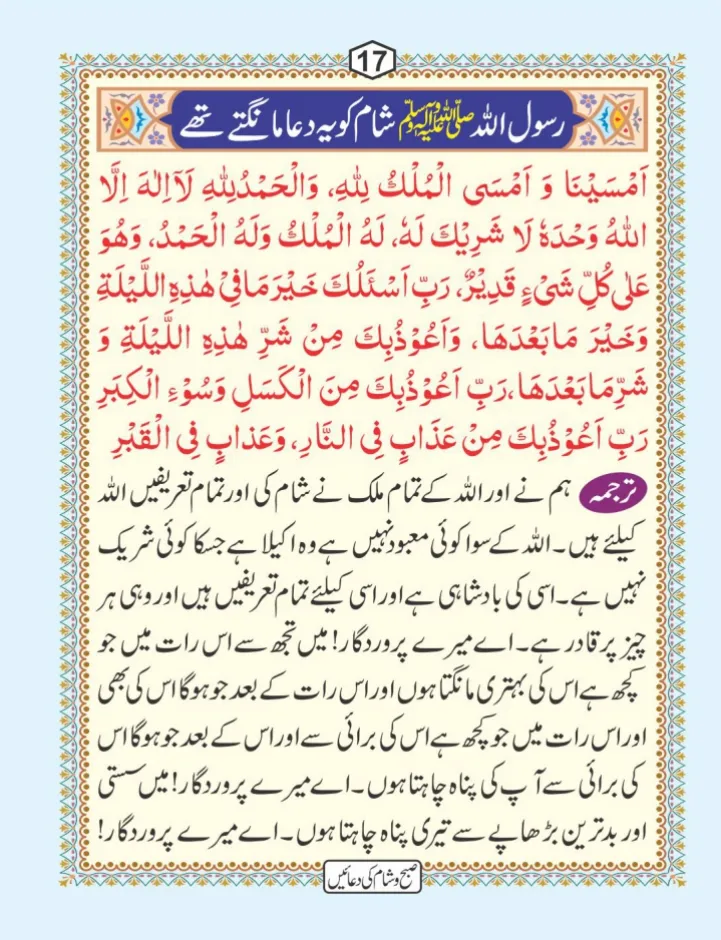 17
رسول اللہ صلی اللہ علیہ وآلہ وسلم شام کو یہ دعا مانگتے تھے
اَمْسَیْنَا وَ اَمْسَی الْمُلْكُ لِلّٰهِ، وَالْحَمْدُلِلّٰهِ لَآاِلٰهَ اِلَّا
اللهُ وَحْدَهٗ لَا شَرِیْكَ لَهٗ، لَهُ الْمُلْكُ وَلَهُ الْحَمْدُ، وَهُوَ
عَلٰی كُلِّ شَیْءٍ قَدِیْرٌ، رَبِّ اَسْئَلُكَ خَیْرَ مَا فِیْ هٰذِهِ اللَّیْلَةِ
وَخَیْرَ مَا بَعْدَهَا، وَاَعُوْذُبِكَ مِنْ شَرِّ هٰذِهِ اللَّیْلَةِ وَ
شَرِّمَا بَعْدَهَا،رَبِّ اَعُوْذُبِكَ مِنَ الْكَسَلِ وَسُوْءِ الْكِبَرِ
رَبِّ اَعُوْذُبِكَ مِنْ عَذَابٍ فِی النَّارِ، وَعَذابٍ فِی الْقَبْرِ
ترجمہ ہم نے اور اللہ کے تمام ملک نے شام کی اور تمام تعریفیں اللہ
کیلئے ہیں۔ اللہ کے سوا کوئی معبود نہیں ہے وہ اکیلا ہے جسکا کوئی شریک
نہیں ہے۔ اسی کی بادشاہی ہے اور اسی کیلئے تمام تعریفیں ہیں اور وہی ہر
چیز پر قادر ہے۔ اے میرے پروردگار! میں تجھ سے اس رات میں جو
کچھ ہے اس کی بہتری مانگتا ہوں اور اس رات کے بعد جو ہوگا اس کی بھی
اور اس رات میں جو کچھ ہے اس کی برائی سے اور اس کے بعد جو ہوگا اس
کی برائی سے آپ کی پناہ چاہتا ہوں۔ اے میرے پروردگار! میں سستی
اور بدترین بڑھاپے سے تیری پناہ چاہتا ہوں۔ اے میرے پروردگار!
صبح و شام کی دعائیں